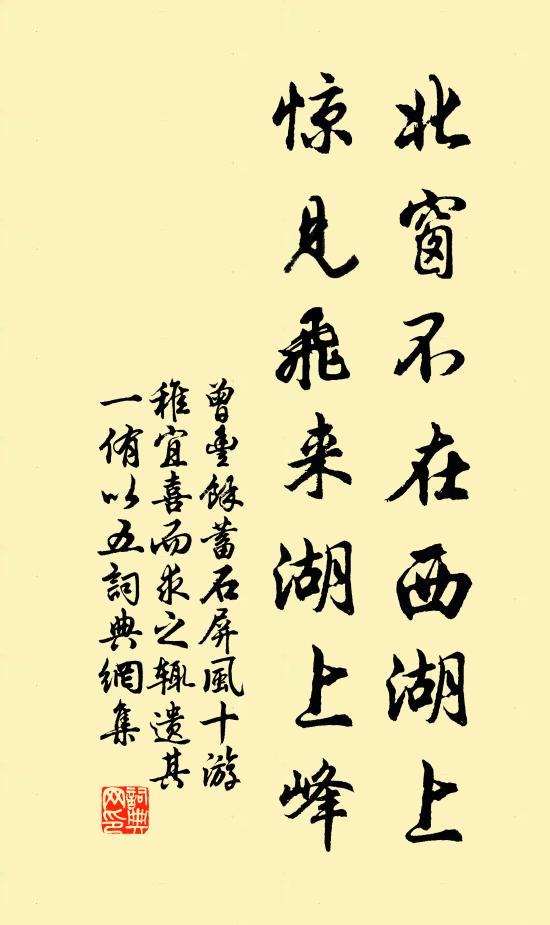 北窗不在西湖上
惊见飛来湖上峰
曾豐餘蓄石屏風十游
稚宜喜而求之辄遗其
一侑以五詞典網集
詞典网印